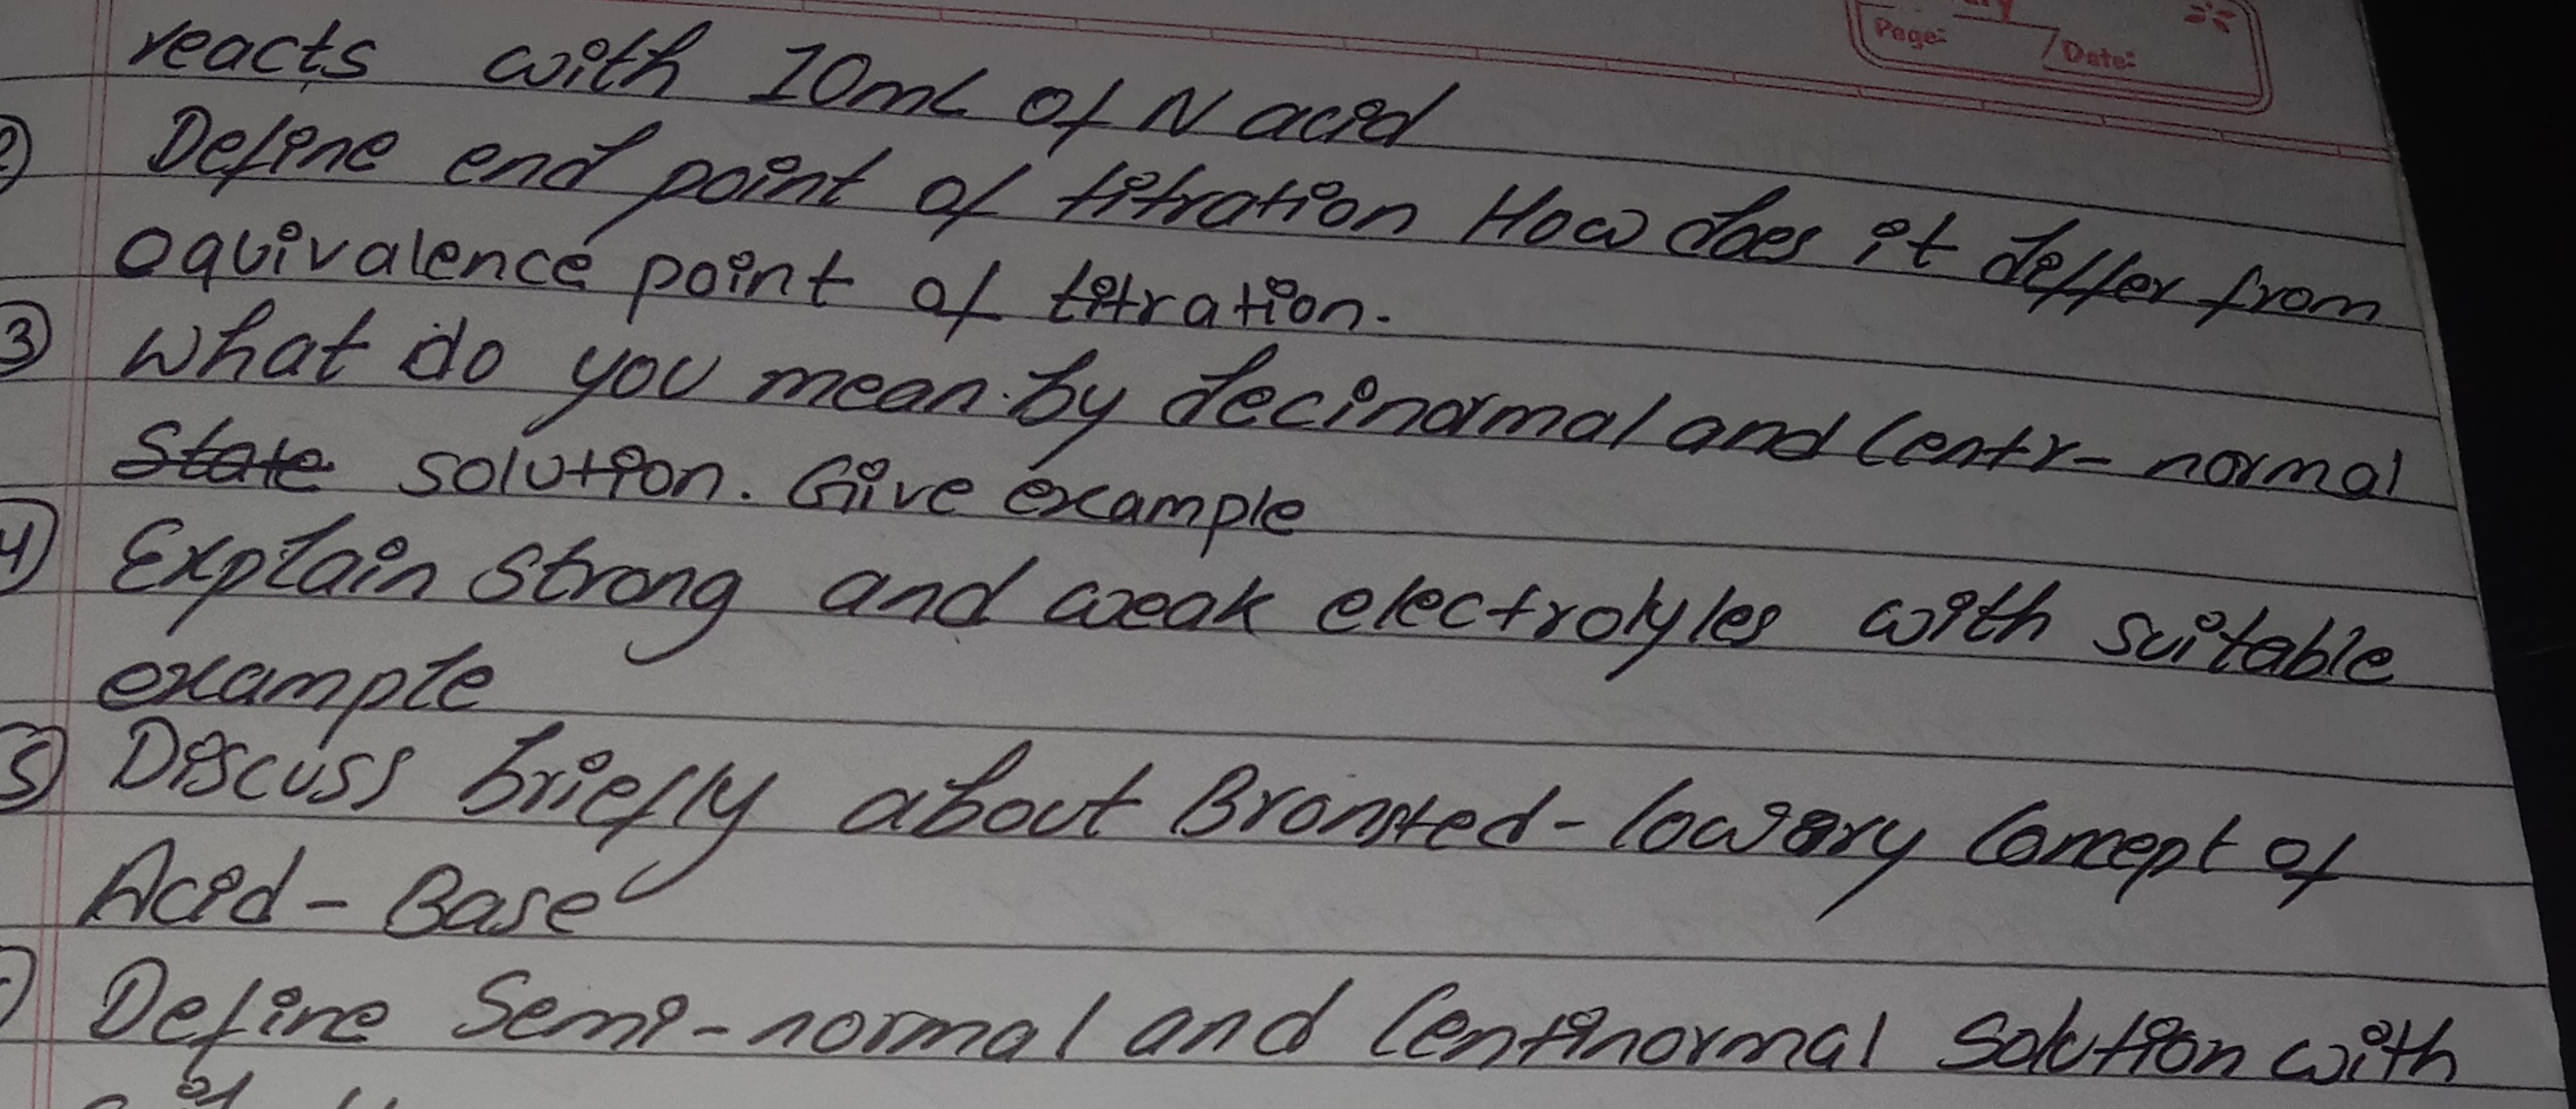 Page: Date:
reacts with 10mL of N acid
2) Define end point of titration How does it deffer from
oquivalence point of titration.
3) What do you mean by decinormal and Centr- normal
State solution. Give example
4) Explain strong and weak electrolyles with suitable
example
5) Discuss briefly about Bronsted- lowary Concept of
Acid - Base
Define Semi-normal and Centinormal Solution with